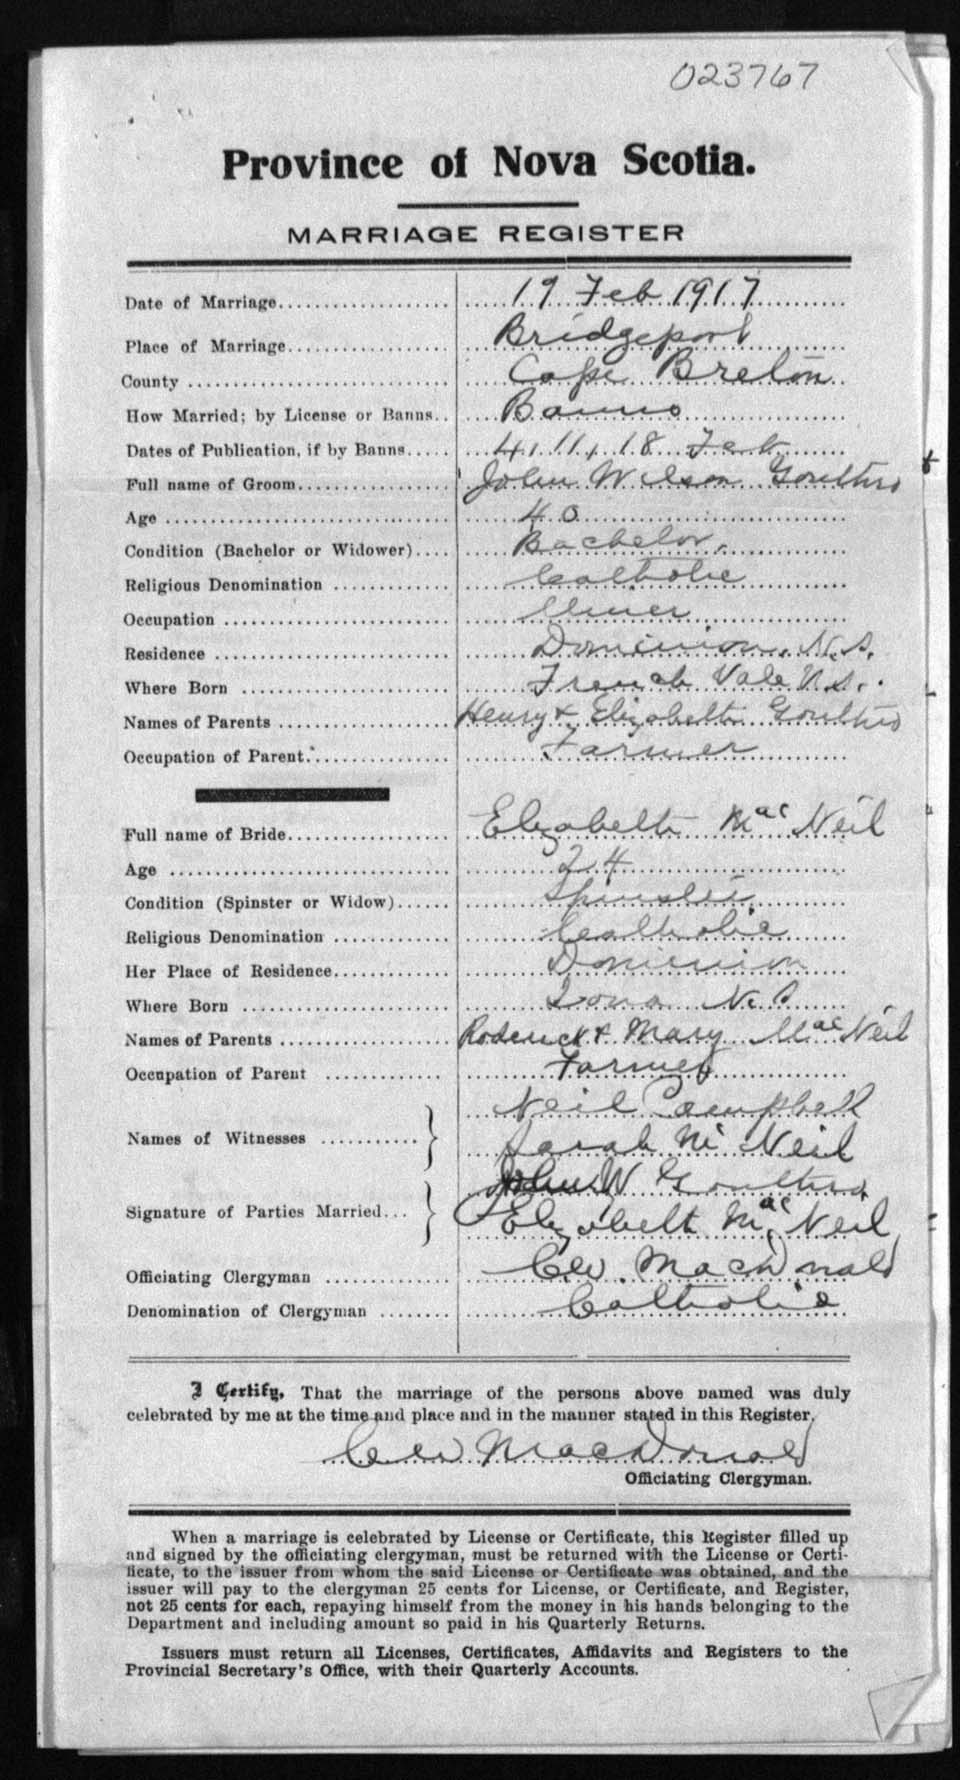 023767
Province of Nova Scotia.
MARRIAGE REGISTER
Date of Marriage 19 Feb 1917
Place of Marriage Bridgeport
County Cape Breton
How Married; by License or Banns Banns
Dates of Publication, if by Banns 4, 11, 18 Feb
Full name of Groom John Wilson Gouthro
Age 40
Condition (Bachelor or Widower) Bachelor.
Religious Denomination Catholic
Occupation Miner
Residence Dominion. N.S.
Where Born French Vale N.S.
Names of Parents Henry & Elizabeth Gouthro
Occupation of Parent Farmer
Full name of Bride Elizabeth Mac Neil
Age 24
Condition (Spinster or Widow) Spinster
Religious Denomination Catholic
Her Place of Residence Dominion
Where Born Iona N.S
Names of Parents Roderick & Mary MacNeil
Occupation of Parent Farmer
Neil Campbell
Names of Witnesses
Sarah Mc Neil
John W Gouthro
Signature of Parties Married
Elizabeth Mac Neil
Officiating Clergyman MacDonald
Denomination of Clergyman Catholic
I Certify, That the marriage of the persons above named was duly
celebrated by me at the time and place and in the manner stated in this Register.
MacDonald
Officiating Clergyman.
When a marriage is celebrated by License or Certificate, this Register filled up
and signed by the officiating clergyman, must be returned with the License or Certi-
ficate, to the issuer from whom the said License or Certificate was obtained, and the
issuer will pay to the clergyman 25 cents for License, or Certificate, and Register,
not 25 cents for each, repaying himself from the money in his hands belonging to the
Department and including amount so paid in his Quarterly Returns.
Issuers must return all Licenses, Certificates, Affidavits and Registers to the
Provincial Secretary's Office, with their Quarterly Accounts.